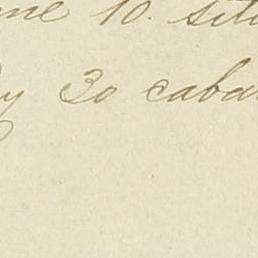 ne 10. sit
y 30 caba